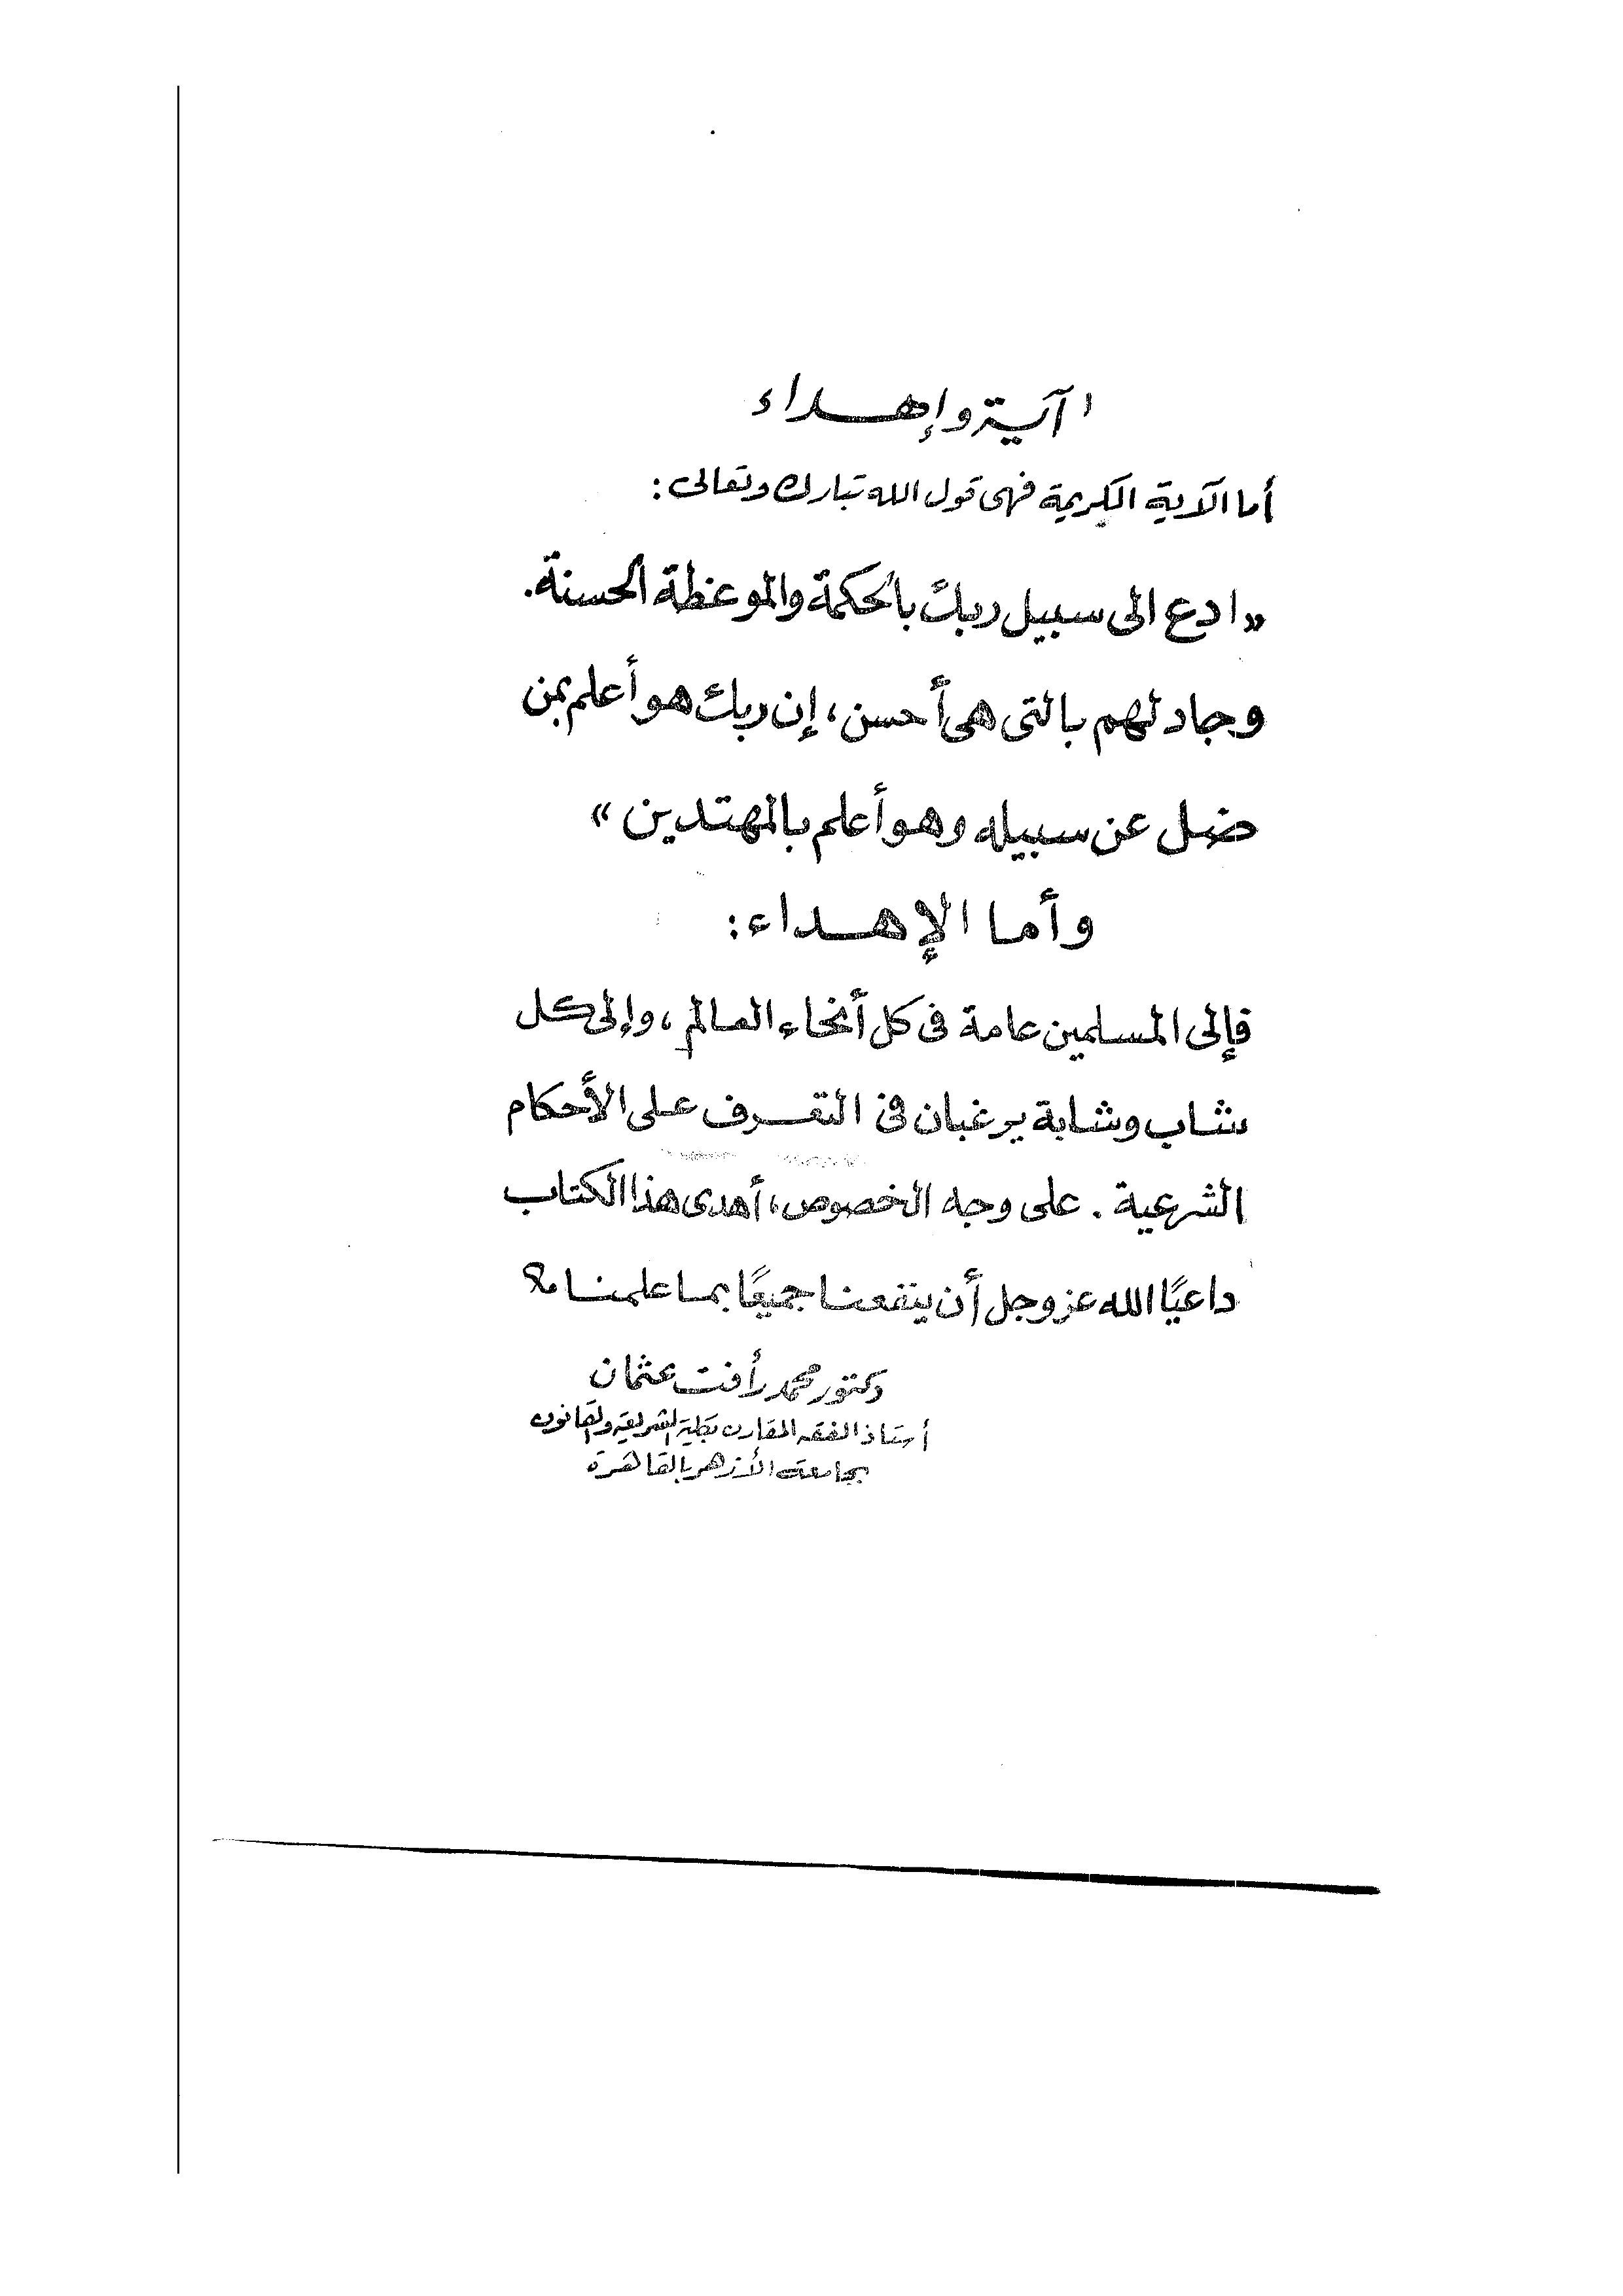 آية وإهداء
أما الآية الكريمة فهى قول الله تبارك وتعالى :
« ادع الى سبيل ربك بالحكمة والموعظة الحسنة.
وجادلهم بالتى هى أحسن، إن ربك هو أعلم بمن
ضل عن سبيله وهو أعلم بالمهتدين »
وأما الإهداء :
فإلى المسلمين عامة فى كل أنحاء العالم ، وإلى كل
شاب وشابة يرغبان فى التعرف على الأحكام
الشرعية . على وجه الخصوص، أهدى هذا الكتاب
داعيًا الله عز وجل أن ينفعنا جميعًا بما علمنا
دكتور محمد رأفت عثمان
أستاذ الفقه المقارن بكلية الشريعة والقانون
بجامعة الأزهر بالقاهرة